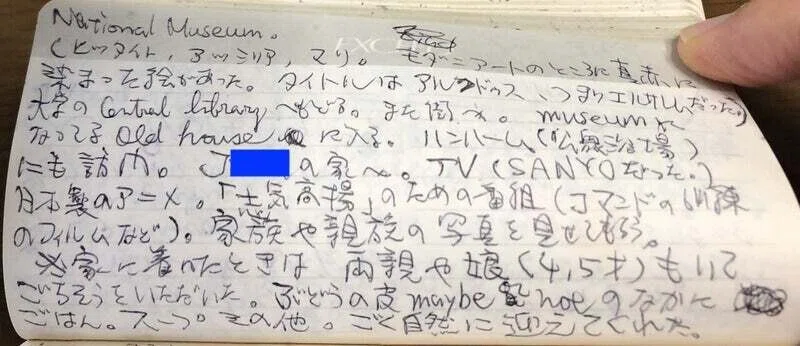 National Museum.
(ヒッタイト, アッシリア, マリ。 モダンアートのところに真赤に
染まった絵があった。タイトルはアルクドゥス つまりエルサレムだった。)
大学の Central library へもどる。また街へ。 museum に
なってる Old house に入る。ハンハーム。(公衆浴場)
にも訪問。 J の家へ。TV (SANYOだった。)
日本製のアニメ。「士気高揚」のための番組 (コマンドの訓練
のフィルムなど)。家族や親族の写真を見せてもらう。
家に着いたときは 両親や娘(4,5才)もいて
ごちそうをいただいた。ぶどうの皮 maybe のなかに
ごはん。スープ。その他。ごく自然に迎えてくれた。